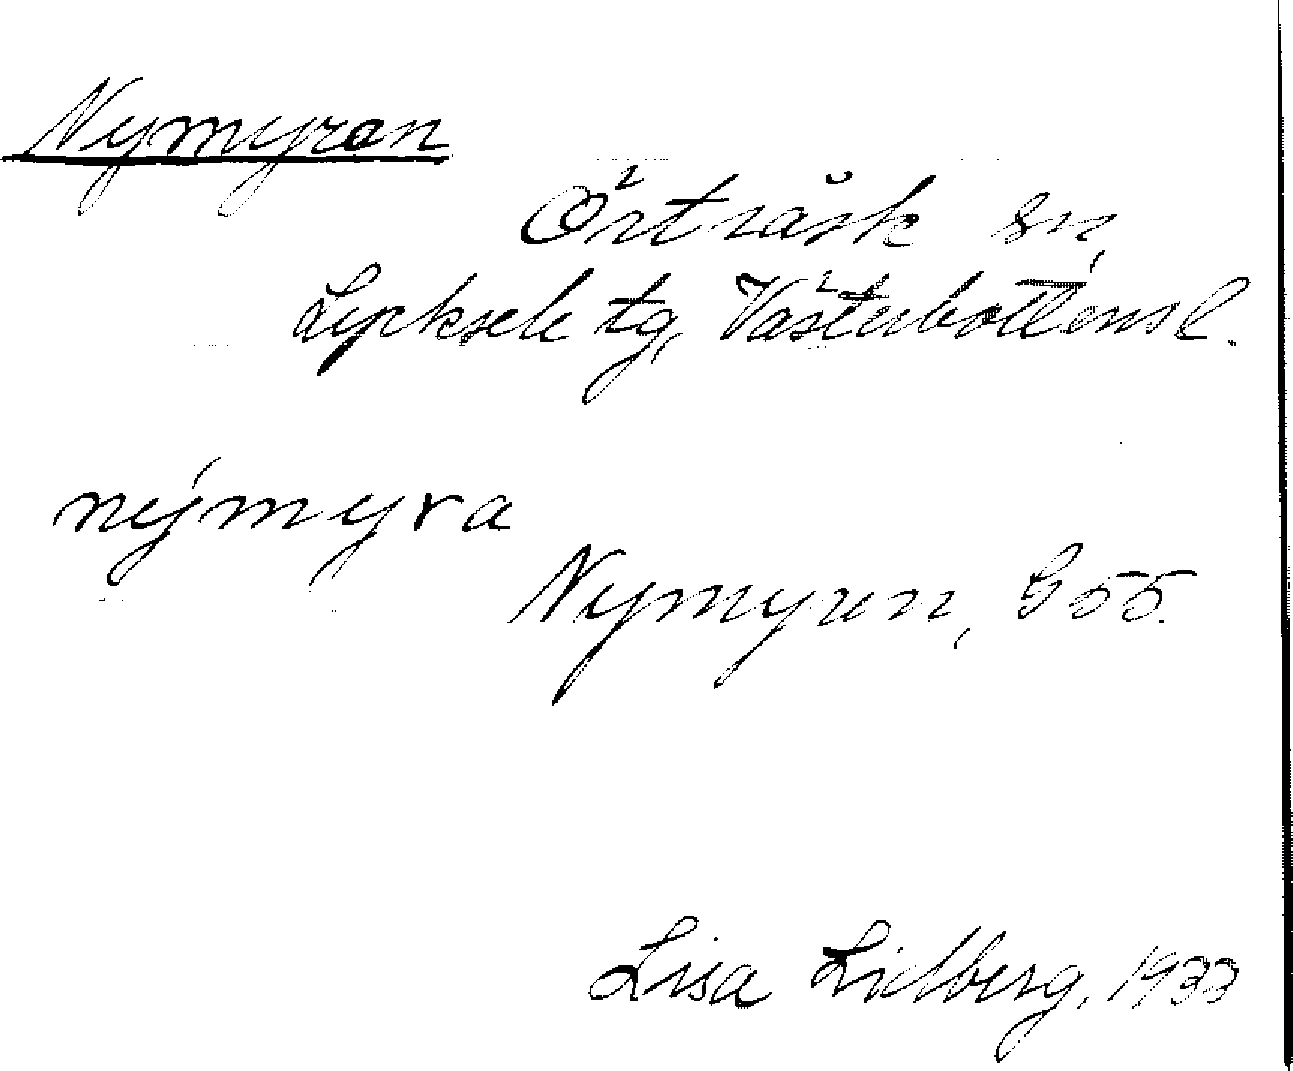 Nymyran
Örträsk sn,
Lycksele tg, Västerbottensl.
nýmyra
Nymyren, G 55.
Lisa Lidberg, 1933